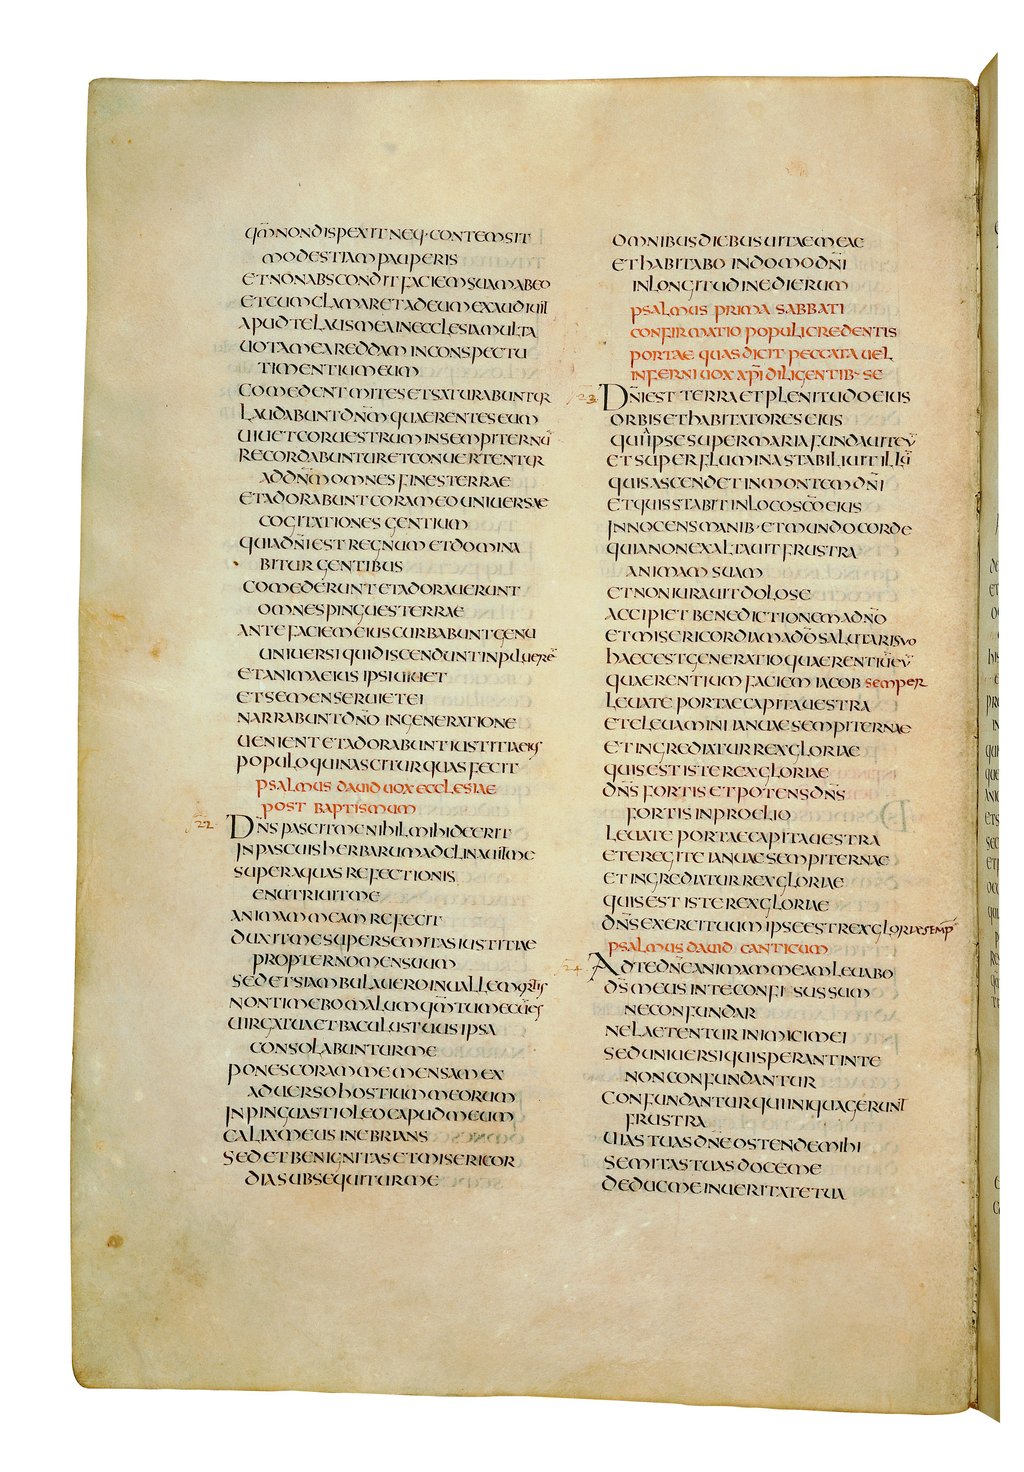 qm̄ non dispexit neq· contemsit
modestiam pauperis
et non abscondit faciem suam a beo
et cum clamaret ad eum exaudiuit
apud te laus mea in ecclesia multa
uota mea reddam in conspectu
timentium eum
comedent mites et saturabuntur
laudabunt dnm̄ quaerentes eum
uiuet cor uestrum in sempiternū
recordabuntur et conuertentur
ad dnm̄ omnes fines terrae
et adorabunt coram eo uniuersae
cogitationes gentium
quia dn̄i est regnum et domina
bitur gentibus
comederunt et adorauerunt
omnes pingues terrae
ante faciem eius curbabunt genu
uniuersi qui discendunt in puluerē
et anima eius ipsi uiuet
et semen seruiet ei
narrabunt dn̄o in generatione
uenient et adorabunt iustitia eis
populo qui nascitur quas fecit
psalmus dauid uox ecclesiae
post baptismum
22 Dn̄s pascit me nihil mihi deerit
in pascuis herbarum adclinauit me
super aquas refectionis
enutriuit me
animam meam refecit
duxit me super semitas iustitiae
propter nomen suum
sed et si ambulauero in ualle mortis
non timebo malum qm̄ tu mecū es
uirga tua et baculus tuus ipsa
consolabuntur me
pones coram me mensam ex
aduerso hostium meorum
inpinguasti oleo capud meum
calix meus inebrians
sed et benignitas et misericor
dia subsequitur me
omnibus diebus uitae meae
et habitabo in domo dn̄i
in longitudine dierum
psalmus prima sabbati
confirmatio populi credentis
portae quas dicit peccata uel
inferni uox xp̄i diligentib· se
23 Dn̄i est terra et plenitudo eius
orbis et habitatores eius
quia ipse super maria fundauit eū
et super flumina stabiliuit illū
quis ascendet in montem dn̄i
et quis stabit in loco sc̄o eius
innocens manib· et mundo corde
qui a non exaltauit frustra
animam suam
et non iurauit dolose
accipiet benedictionem a dn̄o
et misericordiam a dō salutari suo
haec est generatio quaerentiū eū
quaerentium faciem iacob semper
leuate portae capita uestra
et eleuamini ianuae sempiternae
et ingrediatur rex gloriae
quis est iste rex gloriae
dn̄s fortis et potens dn̄s
fortis in proelio
leuate portae capita uestra
et eregite ianuae sempiternae
et ingrediatur rex gloriae
quis est iste rex gloriae
dn̄s exercituum ipse est rex gloriae semp̄
psalmus dauid canticum
24 Ad te dn̄e animam meam leuabo
ds̄ meus in te confisus sum
ne confundar
ne laetentur inimici mei
sed uniuersi qui sperant in te
non confundantur
confundantur qui iniqua gerunt
frustra
uias tuas dn̄e ostende mihi
semitas tuas doce me
deduc me in ueritate tua